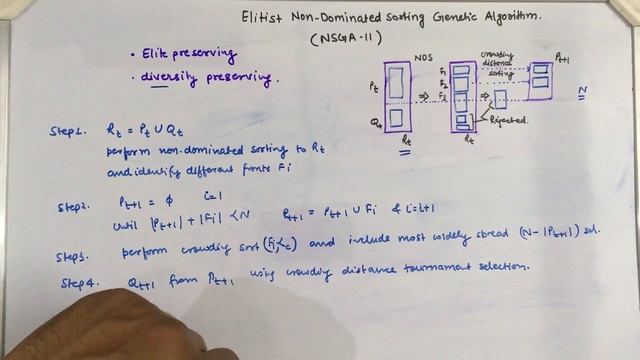 Elitist Non-Dominated Sorting Genetic Algorithm.
(NSGA-II)
• Elite preserving
• diversity preserving.
NDS
crowding distance sorting
Pt+1
Pt
Qt
⇒
F1
F2
F3
⇒
N
Rejected.
Rt
Rt
Step1. Rt = Pt ∪ Qt
perform non-dominated sorting to Rt
and identify different fronts Fi
Step2. Pt+1 = ϕ i=1
Until |Pt+1| + |Fi| < N Pt+1 = Pt+1 ∪ Fi & i=i+1
Step3. perform crowding sort (Fi, <c) and include most widely spread (N - |Pt+1|) sol.
Step4. Qt+1 from Pt+1 using crowding distance tournament selection.